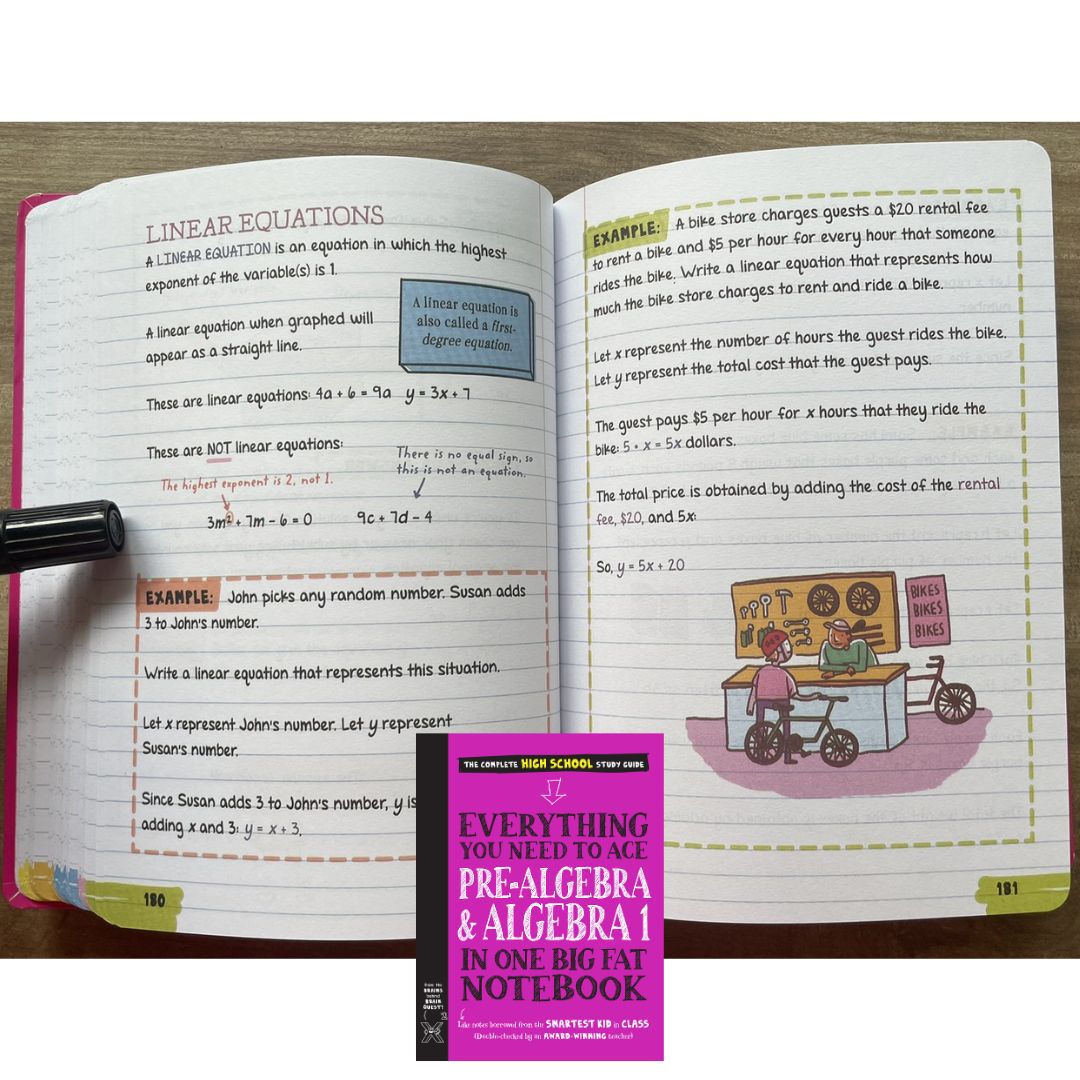 LINEAR EQUATIONS
A LINEAR EQUATION is an equation in which the highest
exponent of the variable(s) is 1.
A linear equation is
also called a first-
degree equation.
A linear equation when graphed will
appear as a straight line.
These are linear equations: 4a + 6 = 9a y = 3x + 7
These are NOT linear equations:
The highest exponent is 2, not 1.
There is no equal sign, so
this is not an equation.
3m² + 7m – 6 = 0 9c + 7d – 4
EXAMPLE: John picks any random number. Susan adds
3 to John's number.
Write a linear equation that represents this situation.
Let x represent John's number. Let y represent
Susan's number.
Since Susan adds 3 to John's number, y is
adding x and 3: y = x + 3.
180
EXAMPLE: A bike store charges guests a $20 rental fee
to rent a bike and $5 per hour for every hour that someone
rides the bike. Write a linear equation that represents how
much the bike store charges to rent and ride a bike.
Let x represent the number of hours the guest rides the bike.
Let y represent the total cost that the guest pays.
The guest pays $5 per hour for x hours that they ride the
bike: 5 • x = 5x dollars.
The total price is obtained by adding the cost of the rental
fee, $20, and 5x:
So, y = 5x + 20
BIKES
BIKES
BIKES
181
THE COMPLETE HIGH SCHOOL STUDY GUIDE
EVERYTHING
YOU NEED TO ACE
PRE-ALGEBRA
& ALGEBRA 1
IN ONE BIG FAT
NOTEBOOK
Like notes borrowed from the SMARTEST KID in CLASS
(Double-checked by an AWARD-WINNING teacher)
from the
BRAINS
behind
BRAIN
QUEST!